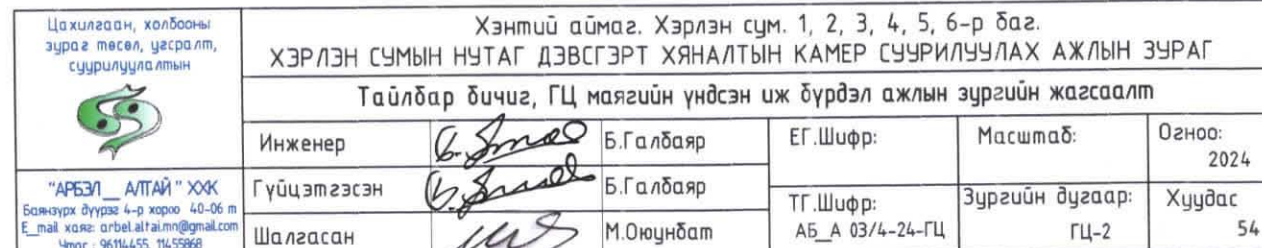 Цахилгаан, холбооны
зураг төсөл, угсралт,
суурилуулалтын
"АРБЭЛ__АЛТАЙ" ХХК
Баянзүрх дүүрэг 4-р хороо 40-06 т
E_mail хаяг: arbel.altai.mn@gmail.com
Утас : 96114455, 11455868
Хэнтий аймаг. Хэрлэн сум. 1, 2, 3, 4, 5, 6-р баг.
ХЭРЛЭН СУМЫН НУТАГ ДЭВСГЭРТ ХЯНАЛТЫН КАМЕР СУУРИЛУУЛАХ АЖЛЫН ЗУРАГ
Тайлбар бичиг, ГЦ маягийн үндсэн иж бүрдэл ажлын зургийн жагсаалт
Инженер Б.Галбаяр
Гүйцэтгэсэн Б.Галбаяр
Шалгасан М.Оюунбат
ЕГ.Шифр:
Масштаб:
Огноо:
2024
ТГ.Шифр:
АБ_А 03/4-24-ГЦ
Зургийн дугаар:
ГЦ-2
Хуудас
54